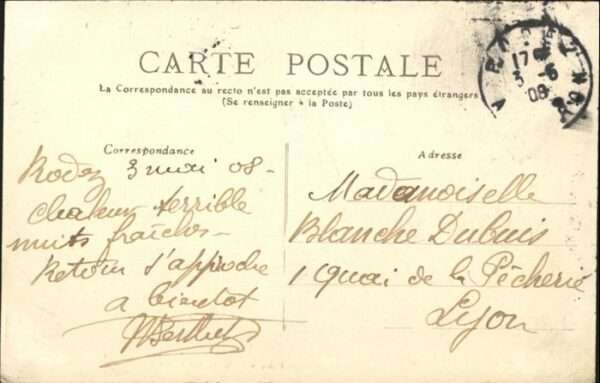 CARTE POSTALE
La Correspondance au recto n'est pas acceptée par tous les pays étrangers
(Se renseigner à la Poste)
Correspondance
Rodez 3 mai 08-
chaleur terrible
nuits fraîches-
Retour s'approche
a bientot
Adresse
Mademoiselle
Blanche Dubuis
1 quai de la Pêcherie
Lyon
17
3 -6
08